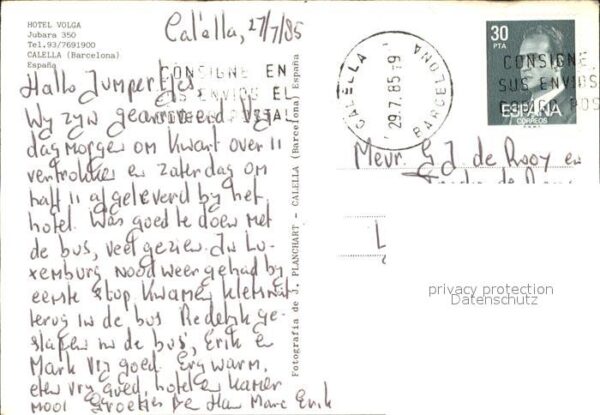 HOTEL VOLGA
Jubara 350
Tel.93/7691900
CALELLA (Barcelona)
España
Calella, 27/7/85
Hallo Jumpertjes
Wy zyn gearriveerd. Vry
dagmorgen om kwart over 11
vertrokken en zaterdag om
half 11 afgeleverd by het
hotel. Was goed te doen met
de bus, veel gezien. In Lu-
xemburg noodweer gehad by
eerste stop. Kwamen kletsnat
terug in de bus. Redelyk ge-
slapen in de bus, Erik en
Mark vry goed. Erg warm,
eten vry goed, hotel en kamer
mooi Groetjes De Han Marc Erik
CONSIGNE EN
SUS ENVIOS EL
CODIGO POSTAL
CALELLA
29.7.85-19
BARCELONA
30
PTA
ESPAÑA
CORREOS
CONSIGNE
SUS ENVIOS
CODIGO POS
Mevr. G J. de Rooy en
Fotografía de J. PLANCHART - CALELLA (Barcelona) España
privacy protection
Datenschutz